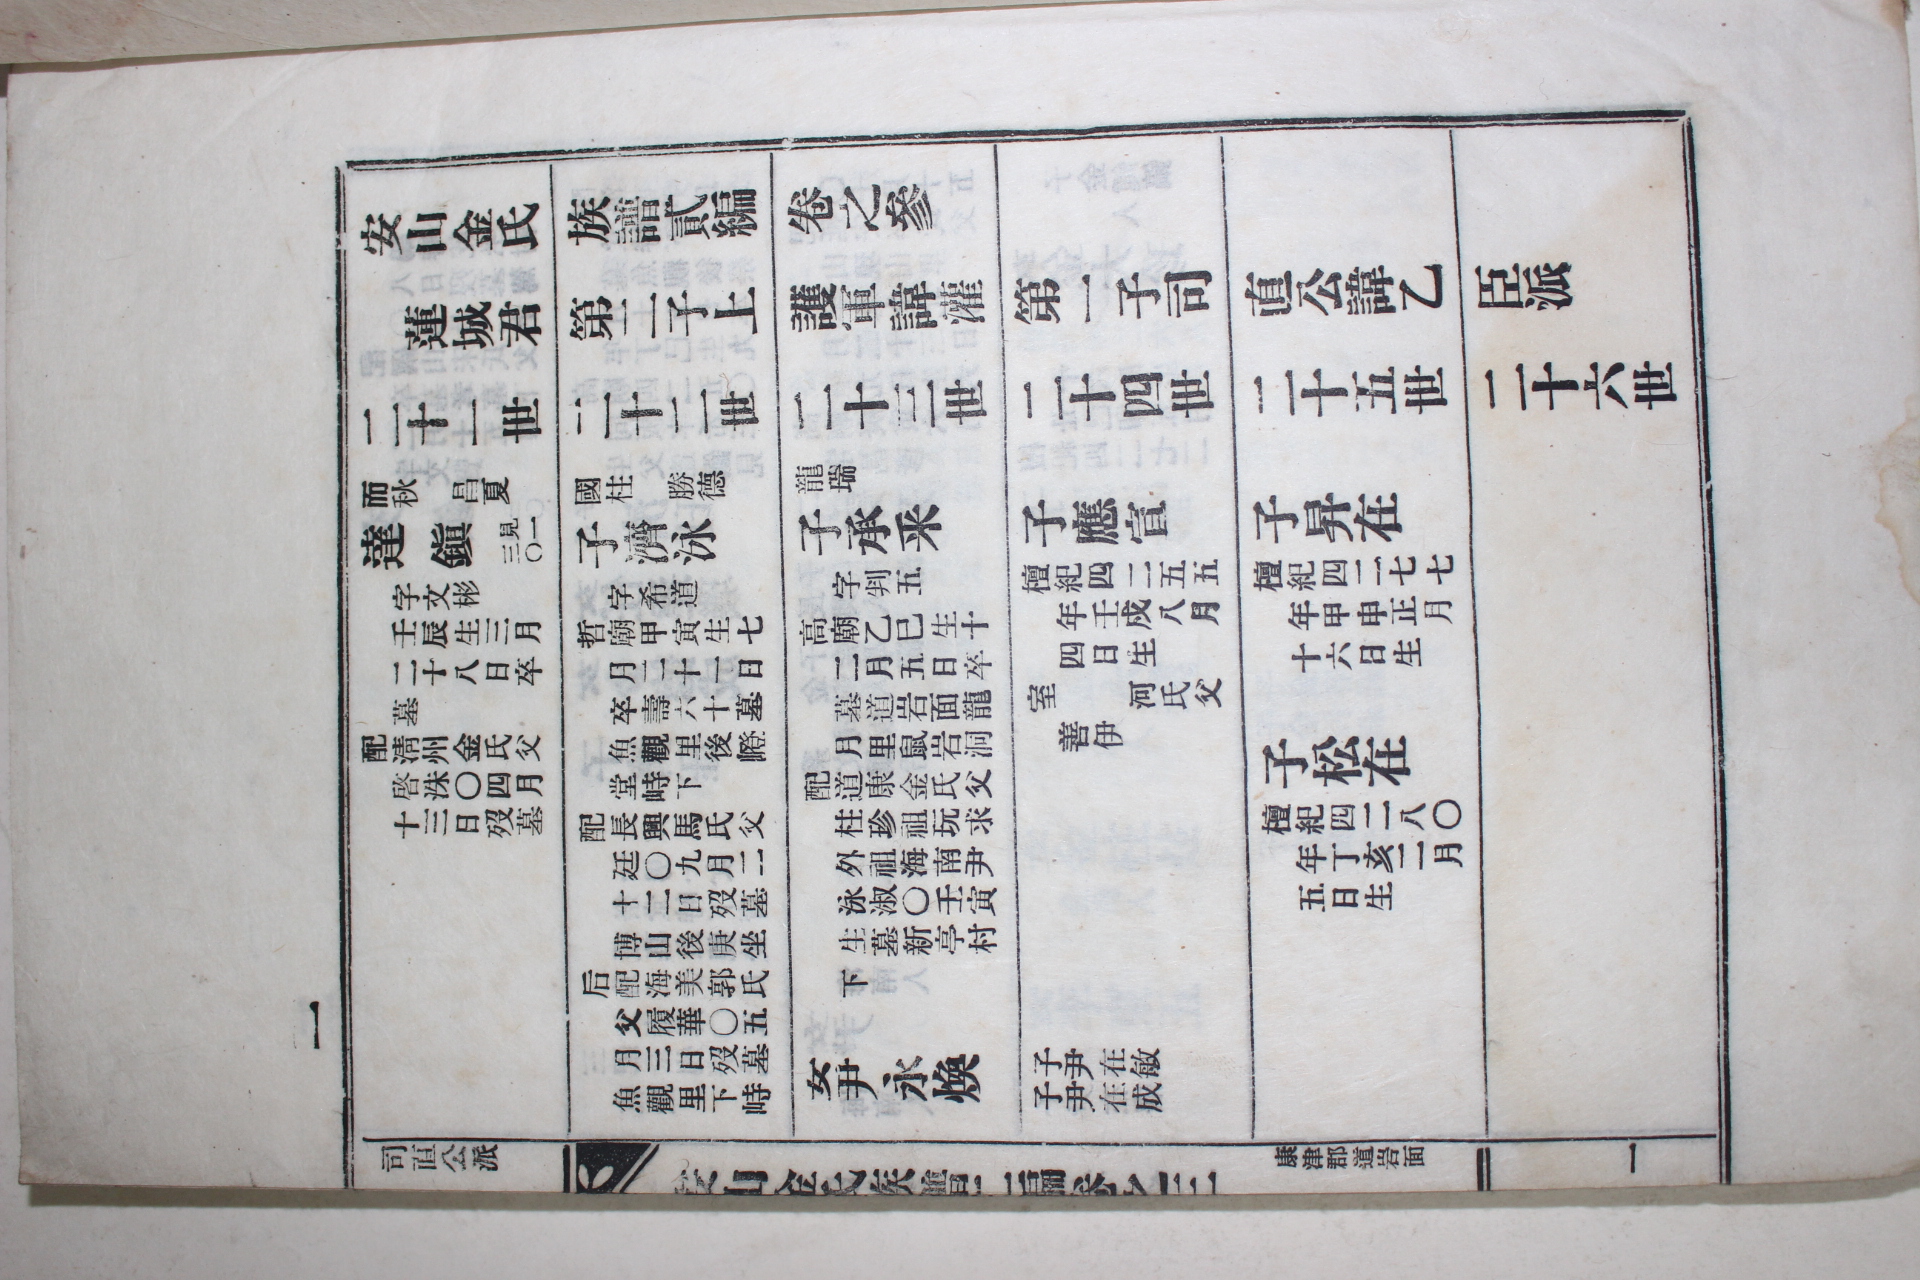 一
安山金氏族譜貳編卷之參
蓮城君第二子上護軍諱灌第一子司直公諱乙臣派
二十一世
二十二世
二十三世
二十四世
二十五世
二十六世
而秋 昌夏
達鎭 見一三〇
字文彬
壬辰生三月
二十八日卒
墓
配淸州金氏父
啓洙〇四月
十三日歿墓
國柱 勝德
子濟泳
字希道
哲廟甲寅生七
月二十一日
卒壽六十墓
魚觀里後嶝
堂峙下
配長興馬氏父
廷〇九月二
十二日歿墓
博山後庚坐
后配海美郭氏
父履華〇五
月三日歿墓
魚觀里下峙
龍瑞
子承釆
字判五
高廟乙巳生十
二月五日卒
墓道岩面龍
月里鼠岩洞
配道康金氏父
柱珍祖玩求
外祖海南尹
泳淑〇壬寅
生墓新亭村
下
女尹永煥
子應宣
檀紀四二五五
年壬戌八月
四日生
室 河氏父
善伊
子尹在敏
子尹在成
子昇在
檀紀四二七七
年甲申正月
十六日生
子松在
檀紀四二八〇
年丁亥二月
五日生
司直公派
安山金氏族譜二編卷之三
康津郡道岩面
一